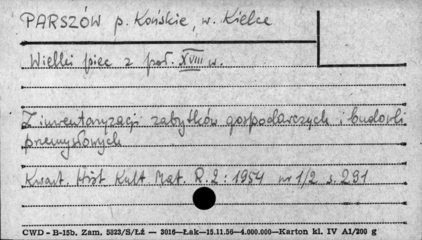 PARSZÓW p. Końskie, w. Kielce
Wielki piec z poł. XVIII w.
Z inwentaryzacji zabytków gospodarczych i budowli
przemysłowych
Kwart. Hist. Kult. Mat. R. 2: 1954 nr 1/2 s. 291
CWD - B-15b. Zam. 5823/S/Łé — 3016—Łak—15.11.56—4.000.000—Karton kl. IV A1/200 g